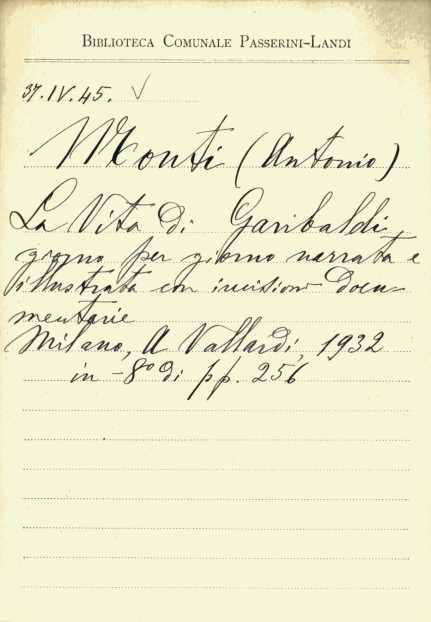 BIBLIOTECA COMUNALE PASSERINI-LANDI
37.IV.45. √
Monti (Antonio)
La Vita di Garibaldi
giorno per giorno narrata e
illustrata con incisioni docu-
mentarie
Milano, A Vallardi, 1932
in -8° di pp. 256